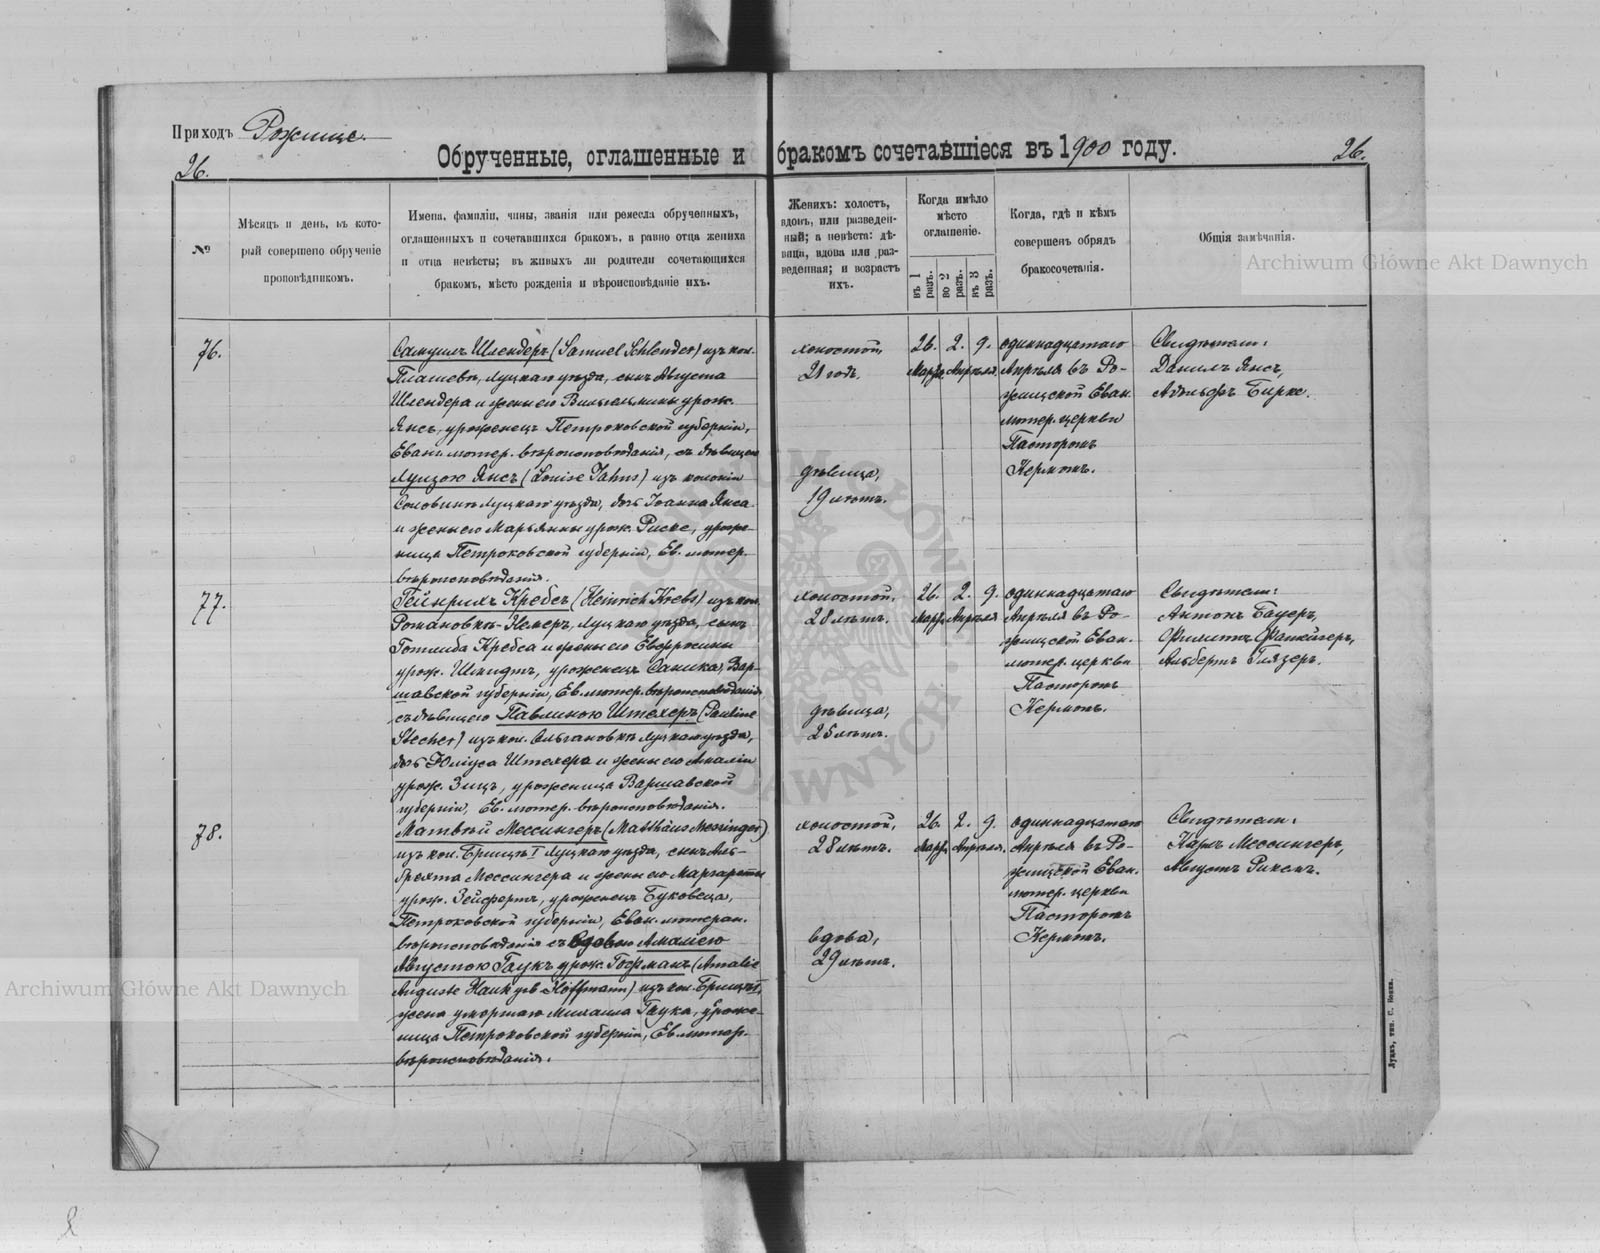 Приходъ Рожище.
26.
Обрученные, оглашенные и бракомъ сочетавшіеся въ 1900 году.
26.
№
Мѣсяцъ и день, въ кото-
рый совершено обрученіе
проповѣдникомъ.
Имена, фамиліи, чины, званія или ремесла обрученныхъ,
оглашенныхъ и сочетавшихся бракомъ, а равно отца жениха
и отца невѣсты; въ живыхъ ли родители сочетающихся
бракомъ, мѣсто рожденія и вѣроисповѣданіе ихъ.
Женихъ: холостъ,
вдовъ, или разведен-
ный; а невѣста: дѣ-
вица, вдова или раз-
веденная; и возрастъ
ихъ.
Когда имѣло
мѣсто
оглашеніе.
въ 1 разъ.
во 2 разъ.
въ 3 разъ.
Когда, гдѣ и кѣмъ
совершенъ обрядъ
бракосочетанія.
Общія замѣчанія.
Archiwum Główne Akt Dawnych
76.
Самуилъ Шлендеръ (Samuel Schlender) изъ кол.
Луцкаго уѣзда, сынъ Августа
Шлендера и жены его Вильгельмины урож.
Янсъ, уроженецъ Петроковской губерніи,
Еванг. лютер. вѣроисповѣданія, съ дѣвицею
Луизою Янсъ (Louise Jahns) изъ колоніи
Луцкаго уѣзда, дочь Іоанна Янса
и жены его Марьянны урож. Риске, уроже-
ница Петроковской губерніи, Ев. лютер.
вѣроисповѣданія.
холостой,
21 годъ.
дѣвица,
19 лѣтъ.
26. 2. 9.
Марта Апрѣля.
одиннадцатаго
Апрѣля въ Ро-
жищской Еван.
лютер. церкви
Пасторомъ
Кермомъ.
Свидѣтели:
Данилъ Янсъ,
Адольфъ Бирке.
77.
Гейнрихъ Кребсъ (Heinrich Krebs) изъ кол.
Луцкаго уѣзда, сынъ
Готлиба Кребса и жены его Евфрозины
урож. Шмидтъ, уроженецъ Вар-
шавской губерніи, Ев. лютер. вѣроисповѣданія
съ дѣвицею Павлиною Штехеръ (Pauline
Stecher) изъ кол. Ольгановкѣ Луцкаго уѣзда,
дочь Юліуса Штехера и жены его Амаліи
урож. Зицъ, уроженица Варшавской
губерніи, Ев. лютер. вѣроисповѣданія.
холостой,
28 лѣтъ.
дѣвица,
25 лѣтъ.
26. 2. 9.
Марта Апрѣля
одиннадцатаго
Апрѣля въ Ро-
жищской Еван.
лютер. церкви
Пасторомъ
Кермомъ.
Свидѣтели:
Антонъ Бауеръ,
Филиппъ
Альбертъ Глязеръ.
78.
Матвѣй Мессингеръ (Matthäus Messinger)
изъ кол. Брищѣ I Луцкаго уѣзда, сынъ Аль-
брехта Мессингера и жены его Маргареты
урож. Зейфертъ, уроженецъ Буковеца,
Петроковской губерніи, Еван. лютеран.
вѣроисповѣданія съ вдовою Амаліею
Августою Гаукъ урож. Гофманъ (Amalie
Auguste Hauk geb. Hoffmann) изъ кол. Брищѣ I,
жена умершаго Михаила Гаука, уроже-
ница Петроковской губерніи, Ев. лютер.
вѣроисповѣданія.
холостой,
28 лѣтъ.
вдова,
29 лѣтъ.
26. 2. 9.
Марта Апрѣля.
одиннадцатаго
Апрѣля въ Ро-
жищской Еван.
лютер. церкви
Пасторомъ
Кермомъ.
Свидѣтели:
Карлъ Мессингеръ,
Августъ
Archiwum Główne Akt Dawnych